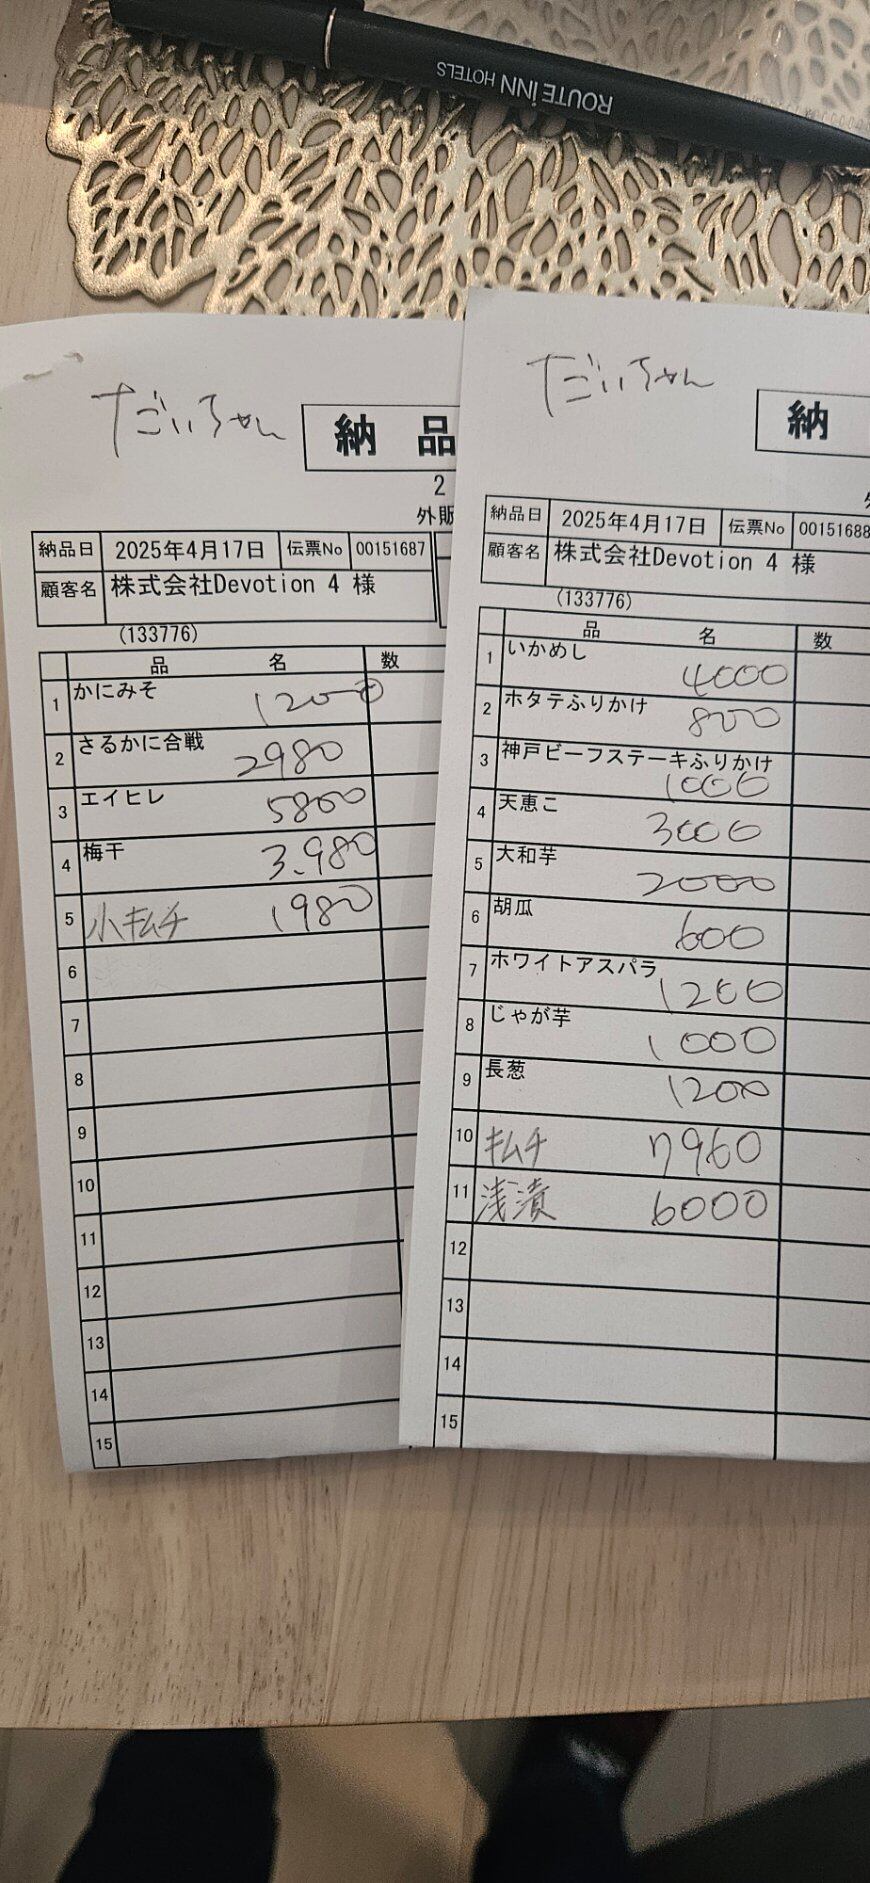 ROUTE INN HOTELS
だいちゃん
納品
2
外販
納品日 2025年4月17日 伝票No 00151687
顧客名 株式会社Devotion 4 様
(133776)
品名 数
1 かにみそ 1200
2 さるかに合戦 2980
3 エイヒレ 5800
4 梅干 3.980
5 小キムチ 1980
6
7
8
9
10
11
12
13
14
15
だいちゃん
納
納品日 2025年4月17日 伝票No 00151688
顧客名 株式会社Devotion 4 様
(133776)
品名 数
1 いかめし 4000
2 ホタテふりかけ 800
3 神戸ビーフステーキふりかけ 1000
4 天恵こ 3000
5 大和芋 2000
6 胡瓜 600
7 ホワイトアスパラ 1200
8 じゃが芋 1000
9 長葱 1200
10 キムチ 7960
11 浅漬 6000
12
13
14
15